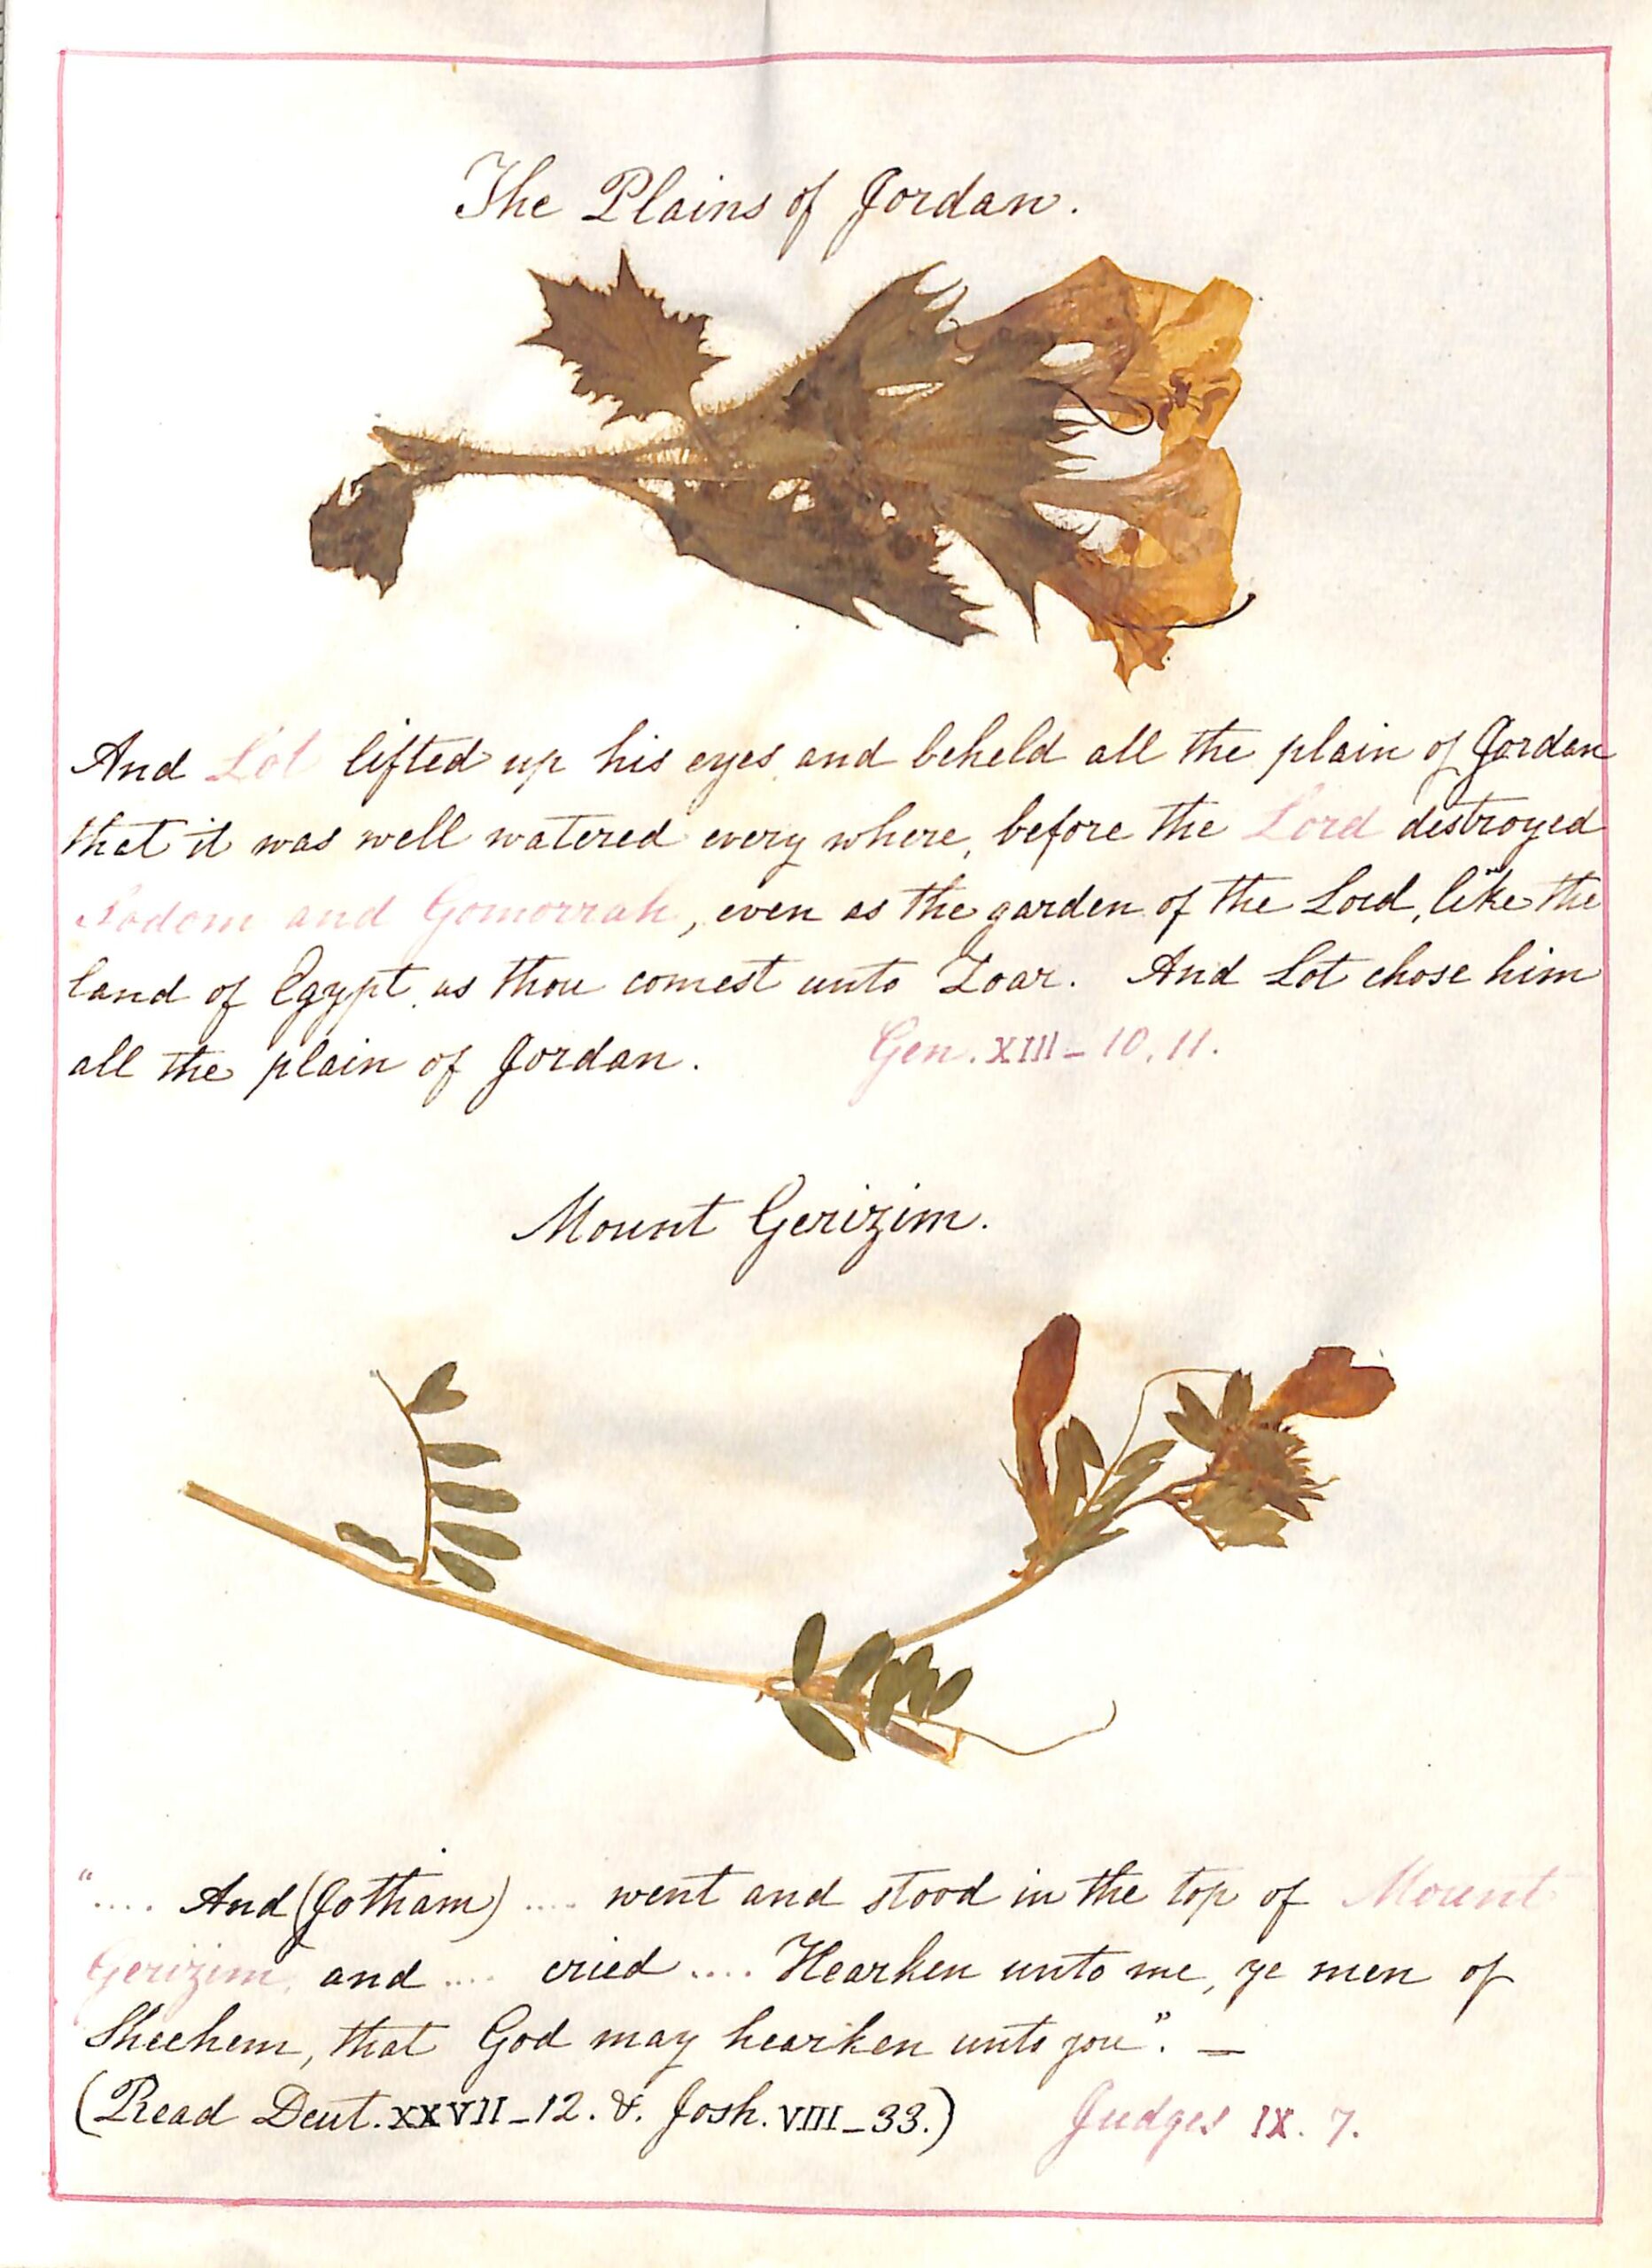 The Plains of Jordan.
And Lot lifted up his eyes and beheld all the plain of Jordan
that it was well watered every where, before the Lord destroyed
Sodom and Gomorrah, even as the garden of the Lord, like the
land of Egypt, as thou comest unto Zoar. And Lot chose him
all the plain of Jordan. Gen. XIII_10, 11.
Mount Gerizim.
".... And (Jotham) .... went and stood in the top of Mount
Gerizim, and .... cried .... Hearken unto me, ye men of
Shechem, that God may hearken unto you". _
(Read Deut. XXVII_12. &. Josh. VIII_33.) Judges IX. 7.